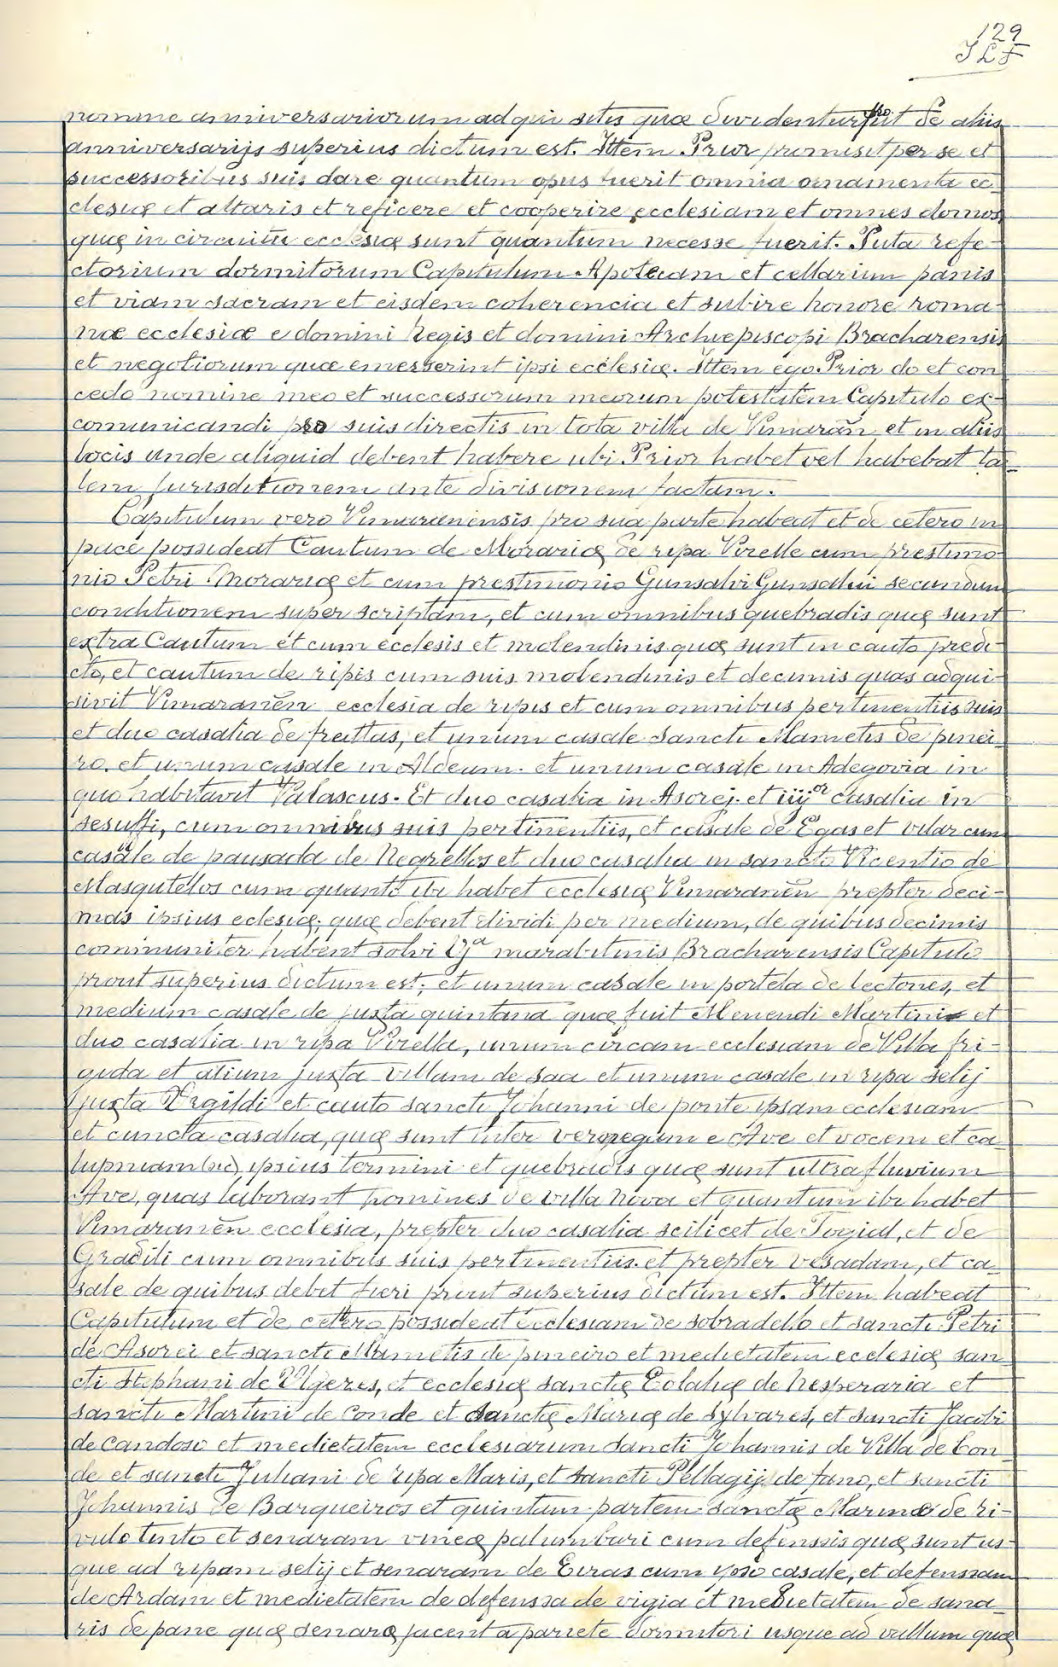 129
JLF
nomine anniversariorum adqui sitis quæ dividentur prout de aliis
anniversarijs superius dictum est. Ittem Prior promisit per se et
successoribus suis dare quantum opus fuerit omnia ornamenta ec-
clesiæ et altaris et reficere et cooperire ecclesiam et omnes domos
quæ in circuitu ecclesiæ sunt quantum necesse fuerit. Puta refe-
ctorium dormitorum Capitulum Apotecam et cellarium panis
et viam sacram et eisdem coherencia et subire honore roma-
næ ecclesiæ e domini Regis et domini Archiepiscopi Bracharensis
et negotiorum quæ emerserint ipsi ecclesiæ. Ittem ego Prior do et con
cedo nomine meo et successorum meorum potestatem Capitulo ex-
comunicandi pro suis directis in tota villa de Vimarañ et in aliis
locis unde aliquid debent habere ubi Prior habet vel habebat ta-
lem jurisditionem ante divisionem factam.
Capitulum vero Vimaranensis pro sua parte habeat et de cetero in
pace possideat Cautum de Moraria de ripa Virelle cum prestimo
nio Petri Morariæ et cum prestimonio Gunsalvi Gunsalvi secundum
conditionem super scriptam, et cum omnibus quebradis quæ sunt
extra Cautum et cum ecclesis et molendinis quæ sunt in cauto predi-
cto, et cautum de ripis cum suis molendinis et decimis quas adqui-
sivit Vimaranẽn ecclesia de ripis et cum omnibus pertinentiis suis
et duo casalia de freittas, et unum casale sancti Mametis de pinei-
ro. et unum casale in Aldeum. et unum casale in Adegovia in
quo habitavit Valascus. Et duo casalia in Asorej. et iiijor casalia in
sesuffi, cum omnibus suis pertinentiis, et casale de Egas et vilar cum
casale de pausada de Negrellos et duo casalia in sancto Vicentio de
Masqutellos cum quanto ibi habet ecclesiæ Vimaranẽn prepter deci-
mas ipsius eclesiæ; quæ debent dividi per medium, de quibus decimis
communiter habent solvi ija marabitinis Bracharensis Capitulo
prout superius dictum est; et unum casale in portela de lectones, et
medium casale de juxta quintana quæ fuit Menendi Martini et
duo casalia in ripa Virella, unum circam ecclesiam de Villa fri-
gida et alium juxta villam de saa et unum casale in ripa selij
juxta Eragildi et cauto sancti Johanni de ponte ipsam ecclesiam
et cuncta casalia, quæ sunt inter veropegum e Ave et vocem et ca-
lupniam (sic), ipsius termini et quebradis quæ sunt ultra fluvium
Ave, quas laborant homines de villa Nova et quantum ibi habet
Vimaranẽn ecclesia, prepter duo casalia scilicet de Togial, et de
Gradili cum omnibus suis pertinentiis. et prepter vesadam, et ca-
sale de quibus debet fieri prout superius dictum est. Ittem habeat
Capitulum et de cettero possideat ecclesiam de sobradello et sancti Petri
de Asorei et sancti Mametis de pineiro et medietatem ecclesiæ san-
cti Stephani de Ulgeres, et ecclesiæ sanctæ Eolaliæ de Nesperaria et
sancti Martini de Conde et sanctæ Mariæ de Sylvares, et sancti Jacobi
de candoso et medietatem ecclesiarum sancti Johannis de Villa de Con-
de et sancti Juliani de ripa Maris, et sancti Pellagij de fano, et sancti
Johannis de Barqueiros et quintum partem sanctæ Marinæ de ri-
vulo tinto et senaram vineæ palumbari cum defenssis quæ sunt us-
que ad ripam selij et senaram de Eiras cum ipso casale, et defenssam
de Ardam et medietatem de defenssa de vigia et medietatem de sana-
ris de pane quæ senaræ jacent a pariete dormitori usque ad vallum quæ